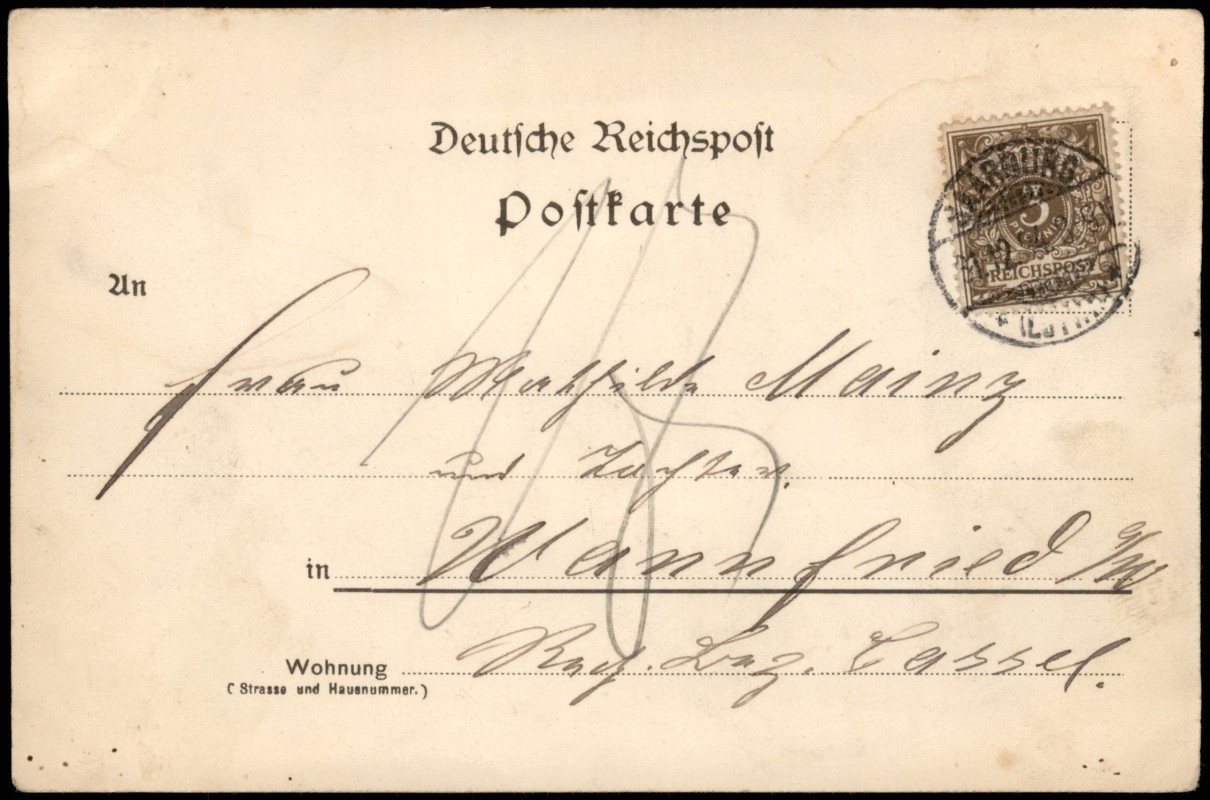 Deutsche Reichspost
Postkarte
SAARBURG
3
PFENNIG
REICHSPOST
31.12
(LOTHR)
An
Frau Mathilde Mainz
und Tochter.
in Wannfried a/W
Wohnung Reg. Bez. Cassel.
(Strasse und Hausnummer.)